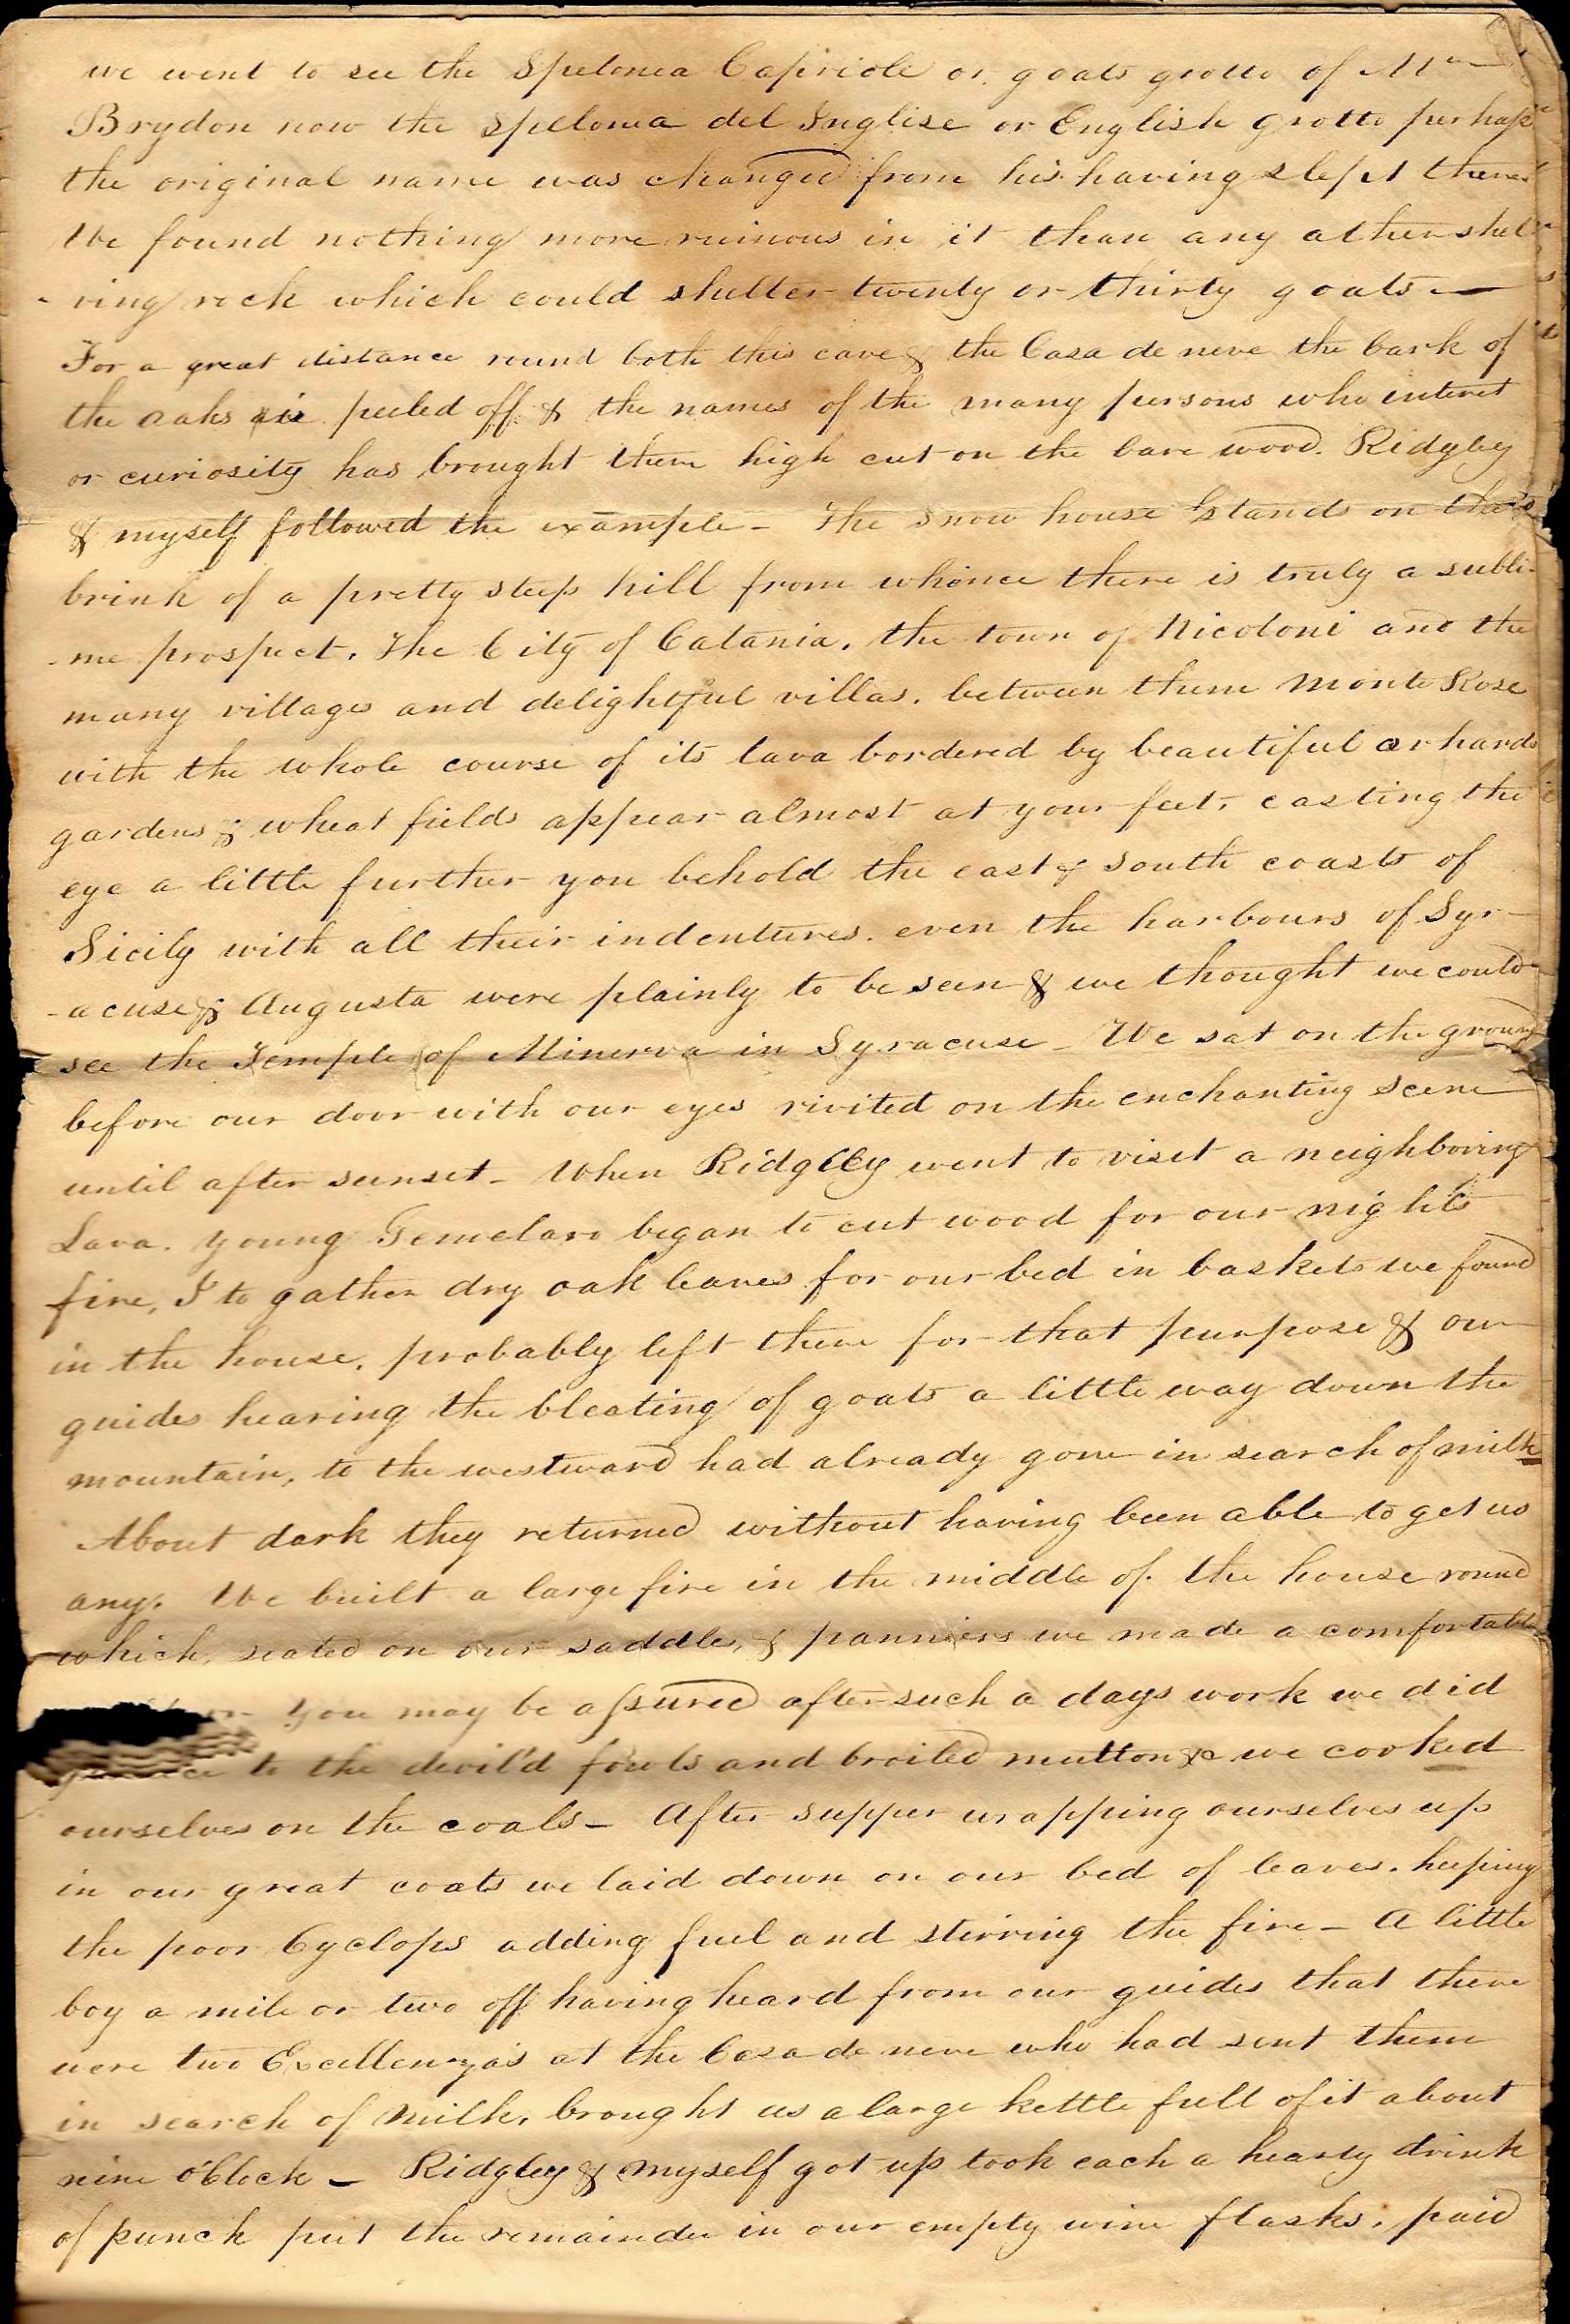 we went to see the Spelonca Capriole or goats grotto of Mr
Brydon now the Spelonca del Inglise or English grotto perhaps
the original name was changed from his having slept there
We found nothing more ruinous in it than any other shel
-ving rock which could shelter twenty or thirty goats —
For a great distance round both this cave & the Casa de neve the bark of
the oaks is peeled off & the names of the many persons who interest
or curiosity has brought there high cut on the bare wood. Ridgley
& myself followed the example - The snow house stands on the
brink of a pretty steep hill from whence there is truly a subli-
-me prospect. The City of Catania, the town of Nicoloni and the
many villages and delightful villas, between them Monte Rose
with the whole course of its lava bordered by beautiful orhards
gardens & wheat fields appear almost at your feet, casting the
eye a little further you behold the east & south coasts of
Sicily with all their indentures. even the harbours of Syr-
-acuse & Augusta were plainly to be seen & we thought we could
see the Temple of Minerva in Syracuse - We sat on the ground
before our door with our eyes rivited on the enchanting scene
until after sunset - When Ridgley went to visit a neighboring
Lava. young Gemelaro began to cut wood for our nights
fire, I to gather dry oak leaves for our bed in baskets we found
in the house, probably left there for that purpose & our
guides hearing the bleating of goats a little way down the
mountain, to the westward had already gone in search of milk
About dark they returned without having been able to get us
any. We built a large fire in the middle of the house round
which, seated on our saddles, & panniers we made a comfortable
You may be assured after such a days work we did
to the devil'd fowls and broiled mutton &c we cooked
ourselves on the coals - After supper wrapping ourselves up
in our great coats we laid down on our bed of leaves. keeping
the poor Cyclops adding fuel and stirring the fire - A little
boy a mile or two off having heard from our guides that there
were two Excellenza's at the Casa de neve who had sent them
in search of milk, brought us a large kettle full of it about
nine o'Clock - Ridgley & myself got up took each a hearty drink
of punch put the remainder in our empty wine flasks, paid